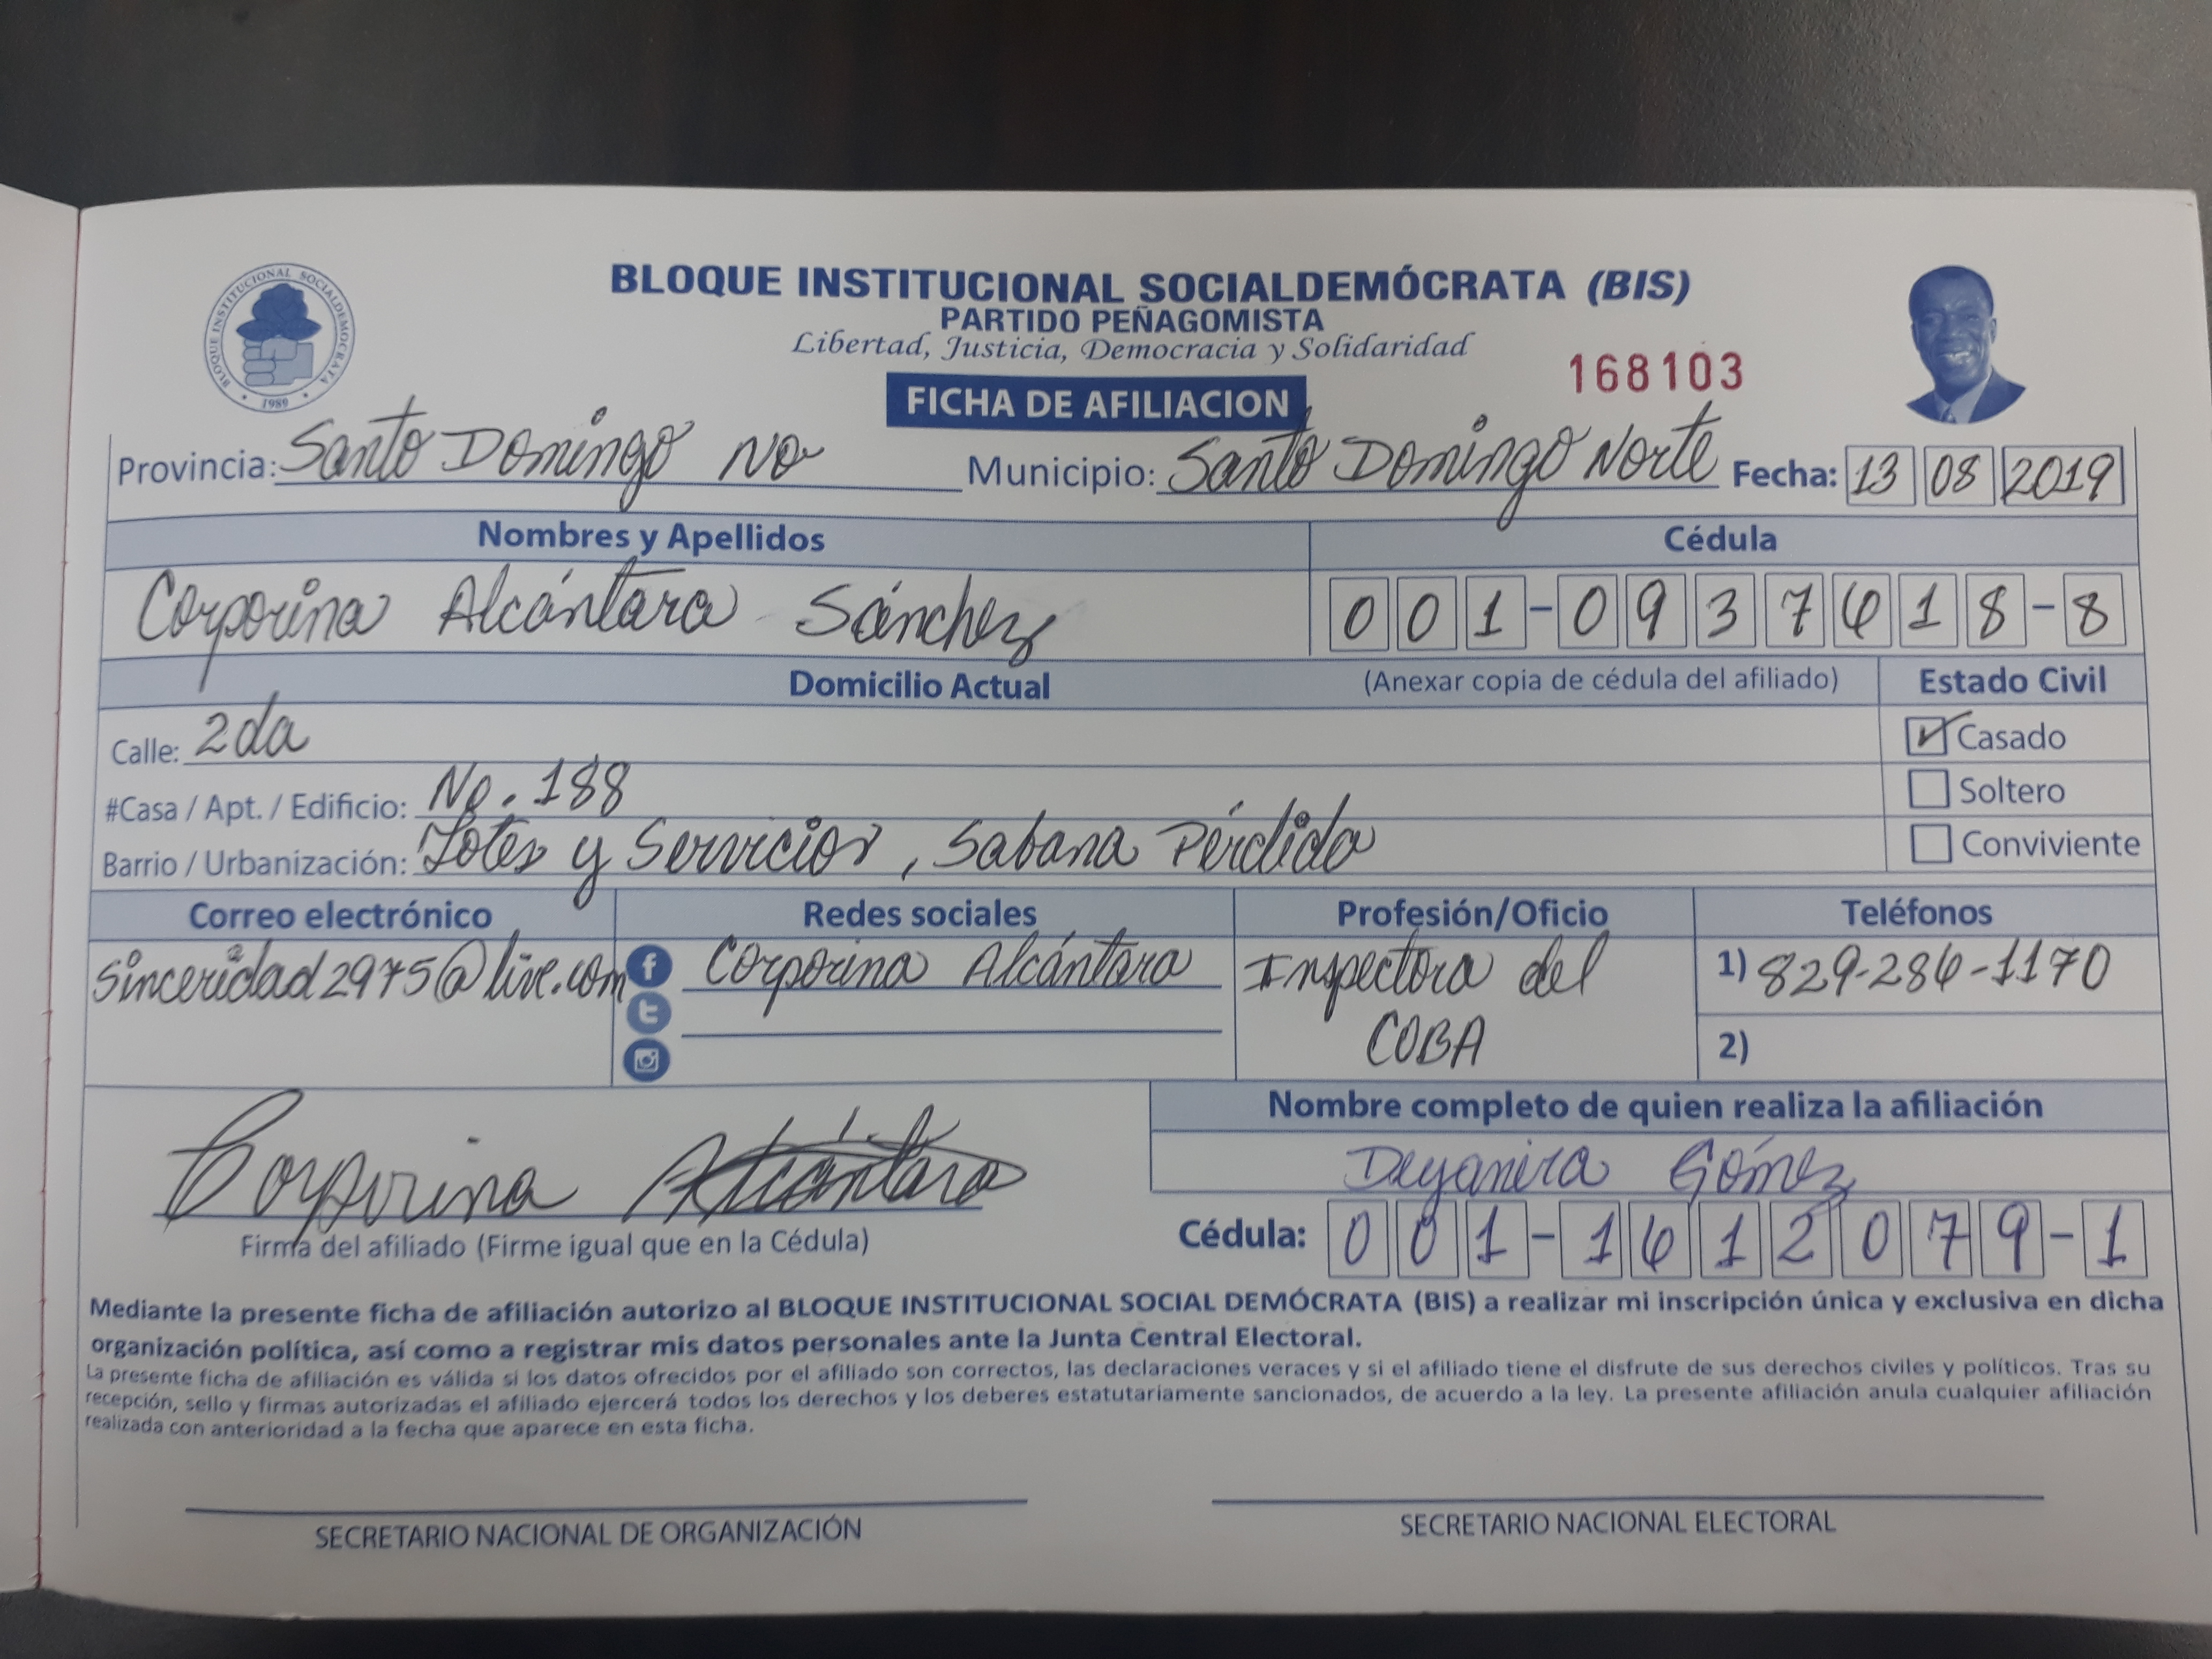 BLOQUE INSTITUCIONAL SOCIALDEMOCRATA
1989
BLOQUE INSTITUCIONAL SOCIALDEMÓCRATA (BIS)
PARTIDO PEÑAGOMISTA
Libertad, Justicia, Democracia y Solidaridad
168103
FICHA DE AFILIACION
Provincia: Santo Domingo No Municipio: Santo Domingo Norte Fecha: 13 08 2019
Nombres y Apellidos Cédula
Corporina Alcántara Sánchez 001-0937618-8
Domicilio Actual (Anexar copia de cédula del afiliado) Estado Civil
Calle: 2da Casado
#Casa / Apt. / Edificio: No. 188 Soltero
Barrio / Urbanización: Lotes y Servicios, Sabana Pérdida Conviviente
Correo electrónico Redes sociales Profesión/Oficio Teléfonos
sinceridad2975@live.com f Corporina Alcántara Inspectora del 1) 829-286-1170
t COBA 2)
Nombre completo de quien realiza la afiliación
Corporina Alcántara Deyanira Gómez
Firma del afiliado (Firme igual que en la Cédula) Cédula: 001-1612079-1
Mediante la presente ficha de afiliación autorizo al BLOQUE INSTITUCIONAL SOCIAL DEMÓCRATA (BIS) a realizar mi inscripción única y exclusiva en dicha
organización política, así como a registrar mis datos personales ante la Junta Central Electoral.
La presente ficha de afiliación es válida si los datos ofrecidos por el afiliado son correctos, las declaraciones veraces y si el afiliado tiene el disfrute de sus derechos civiles y políticos. Tras su
recepción, sello y firmas autorizadas el afiliado ejercerá todos los derechos y los deberes estatutariamente sancionados, de acuerdo a la ley. La presente afiliación anula cualquier afiliación
realizada con anterioridad a la fecha que aparece en esta ficha.
SECRETARIO NACIONAL DE ORGANIZACIÓN SECRETARIO NACIONAL ELECTORAL